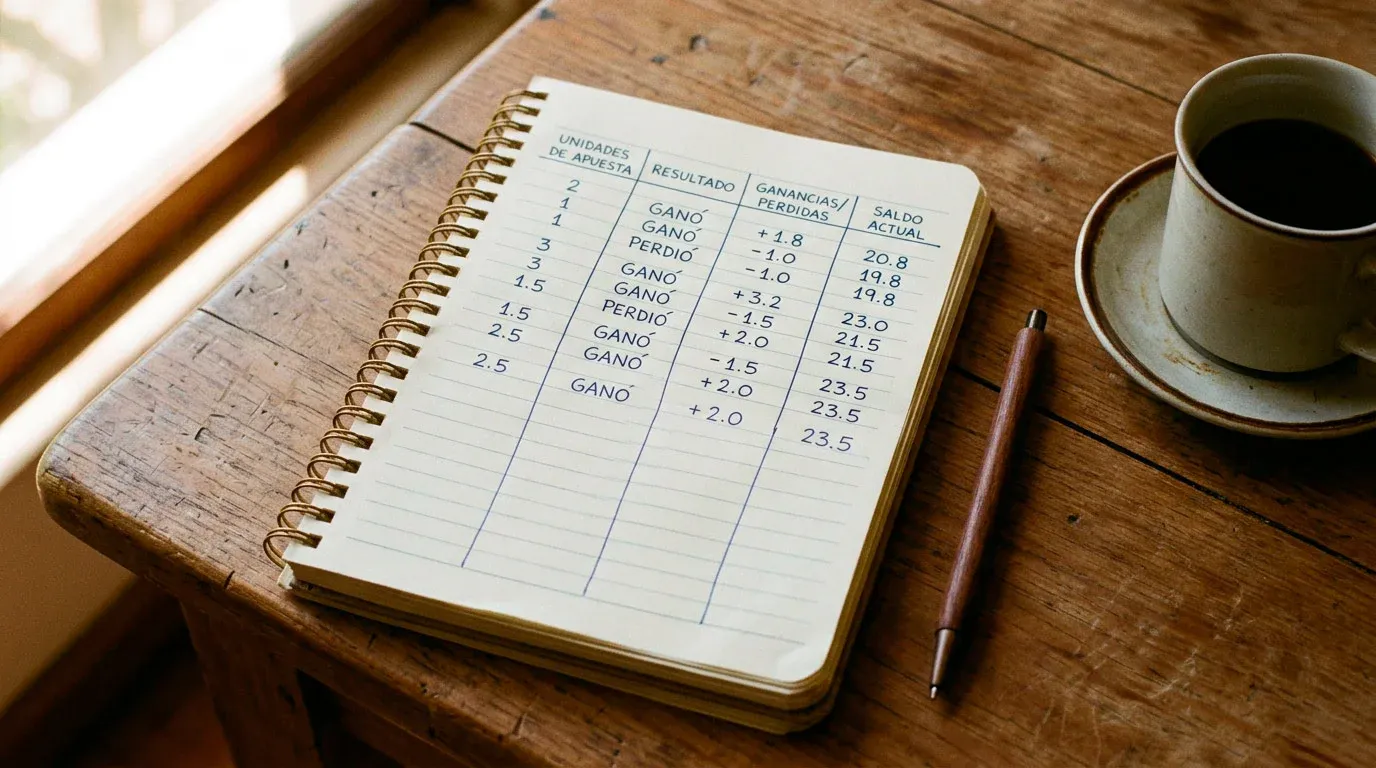 UNIDADES DE APUESTA RESULTADO GANANCIAS/ PERDIDAS SALDO ACTUAL
2 GANÓ +1.8 20.8
1 GANÓ -1.0 19.8
1 PERDIÓ -1.0 19.8
3 GANÓ +3.2 23.0
3 GANÓ -1.5 21.5
1.5 PERDIÓ +2.0 21.5
1.5 GANÓ -1.5 23.5
2.5 GANÓ +2.0 23.5
2.5 GANÓ +2.0 23.5